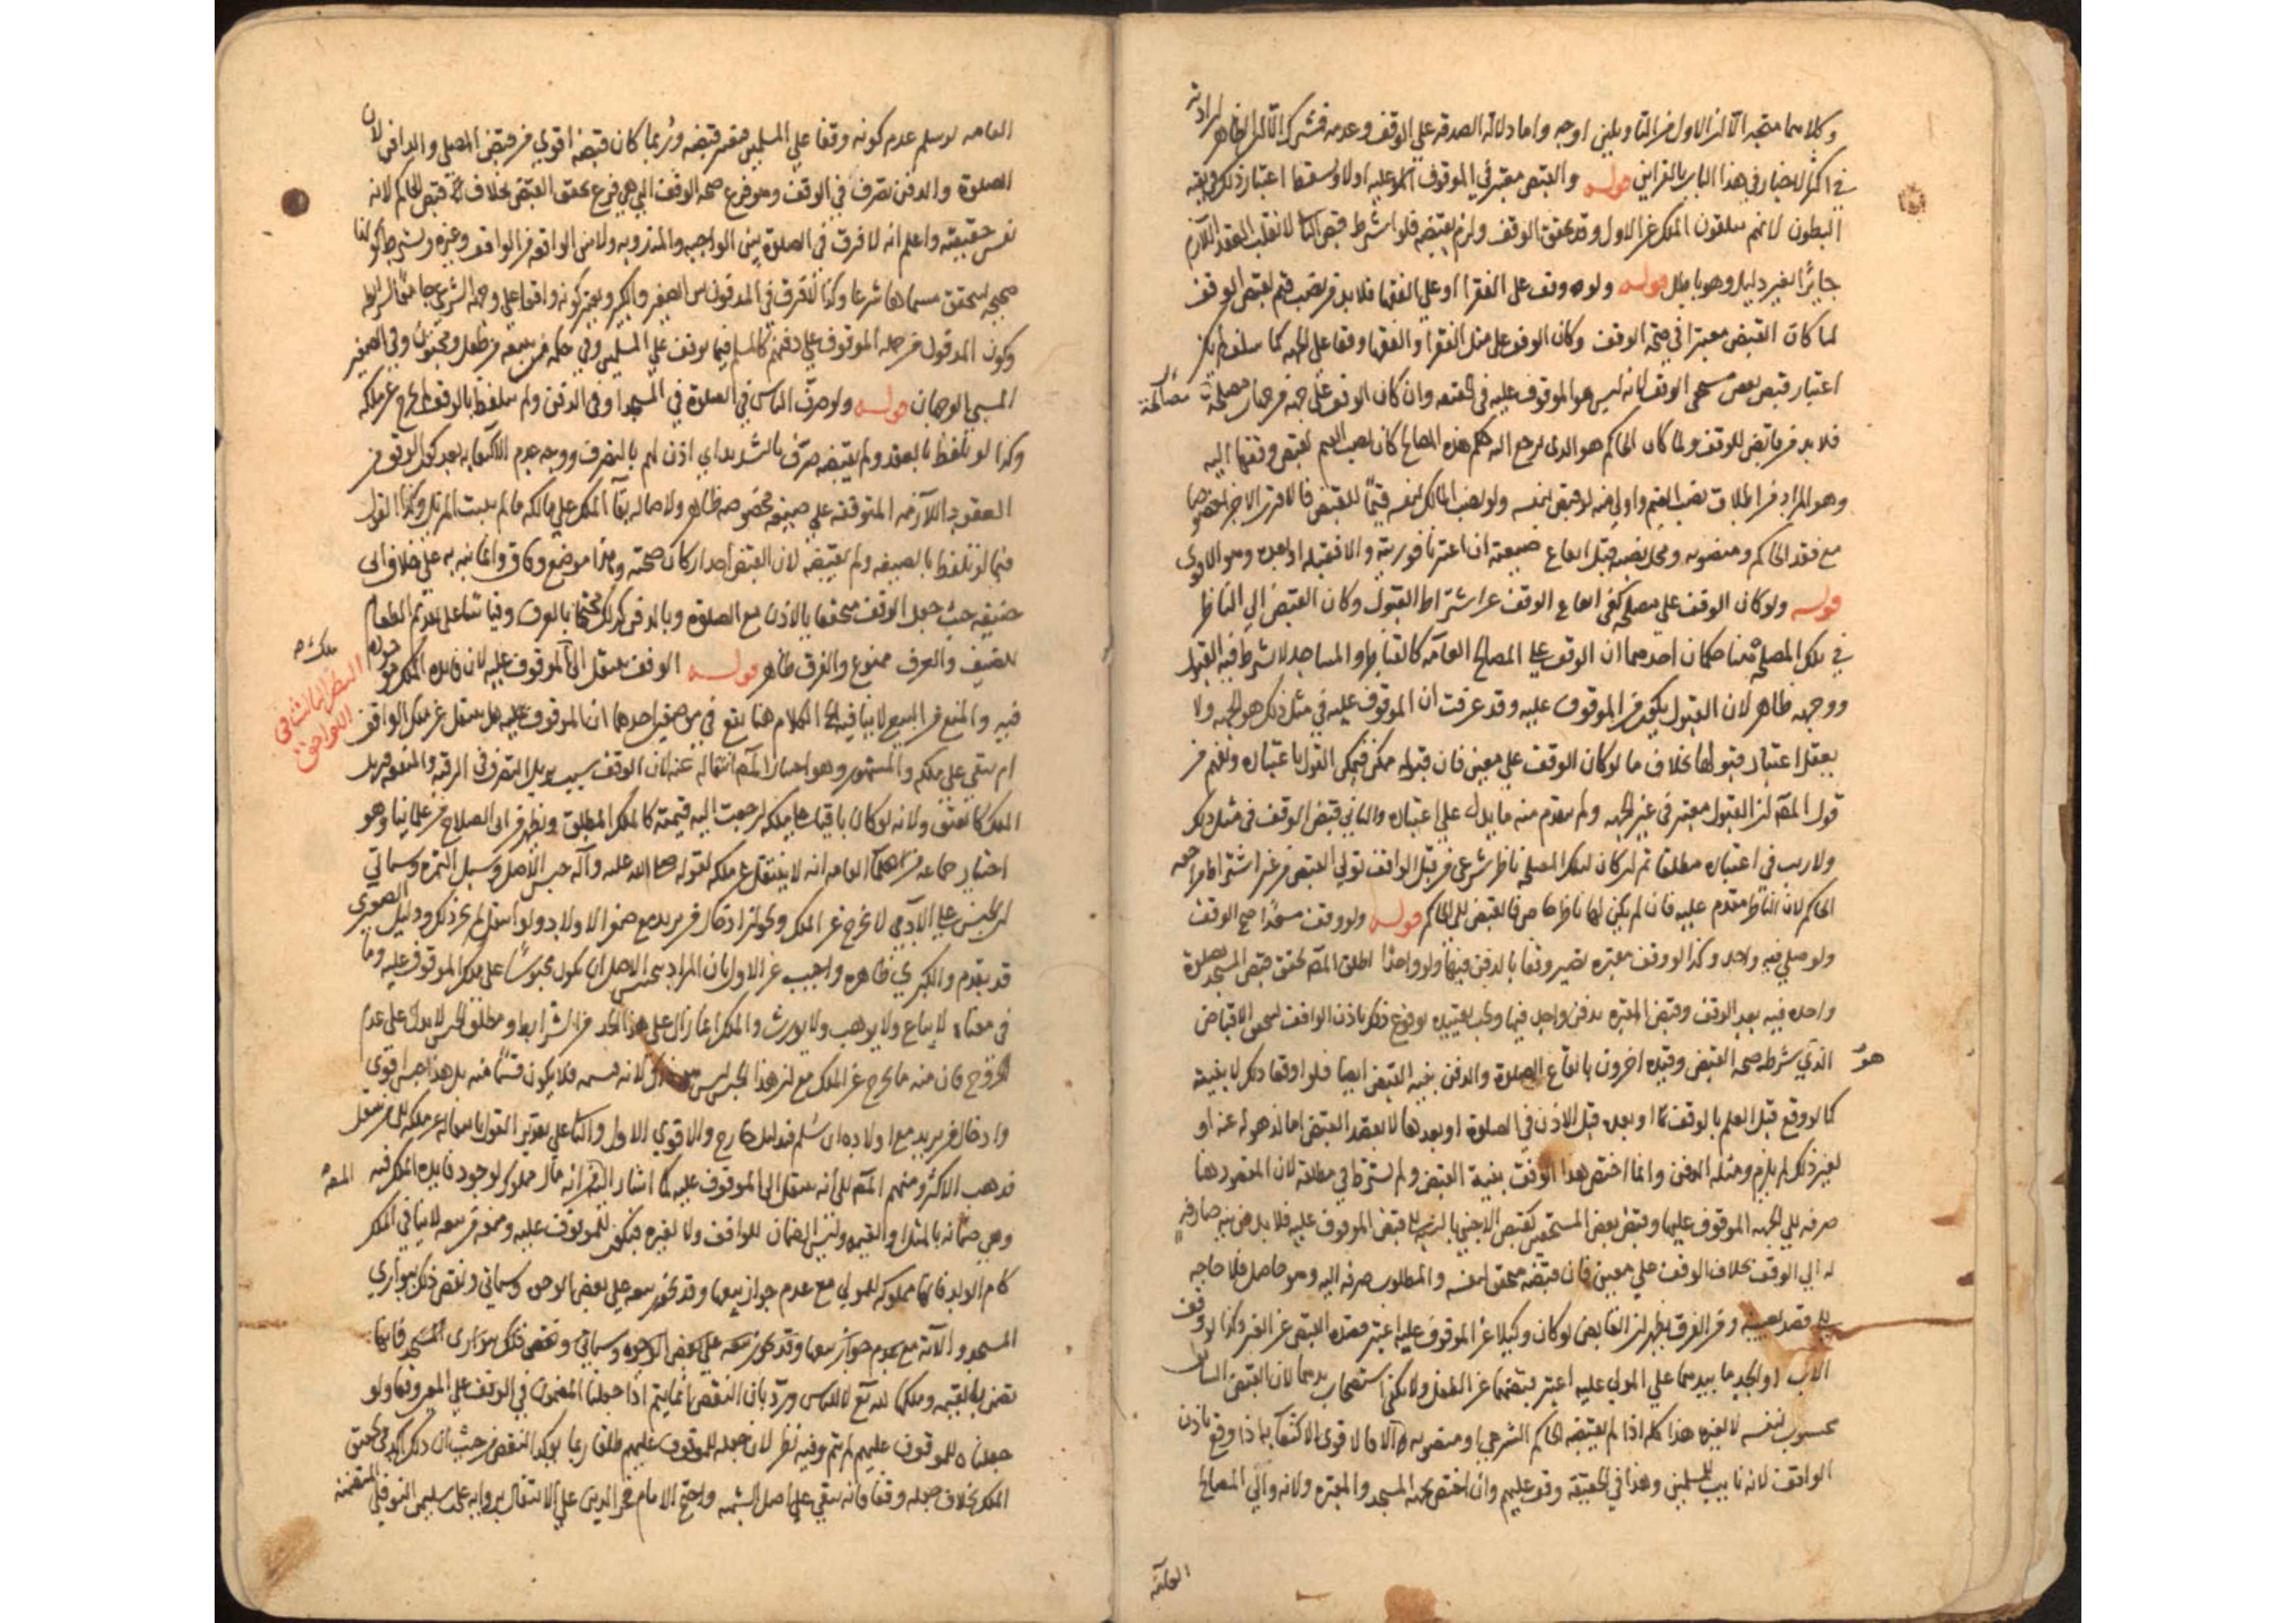 وكلاهما متجه الا ان الاول من التاويلين اوجه واما دلالة الصدقة علي الوقف وعدمه فمشترك الا ان الظاهر ارادته
في اكثر الاخبار في هذا الباب بالقراين قوله والقبض معتبر في الموقوف عليه اولا ويسقط اعتبار ذلك في بقية
البطون لانهم يتلقون الملك عن الاول وقد تحقق الوقف ولزم بقبضه فلو اشترط قبض الثاني لانقلب العقد اللازم
جايزا لغير دليل وهو باطل قوله ولو وقف على الفقرا او علي الفقها فلا بد من نصب قيم لقبض الوقف
لما كان القبض معتبرا في صحة الوقف وكان الوقف على مثل الفقرا والفقها وقفا على الجهة كما سلف لم يكن
اعتبار قبض بعض مستحقي الوقف لانه ليس هو الموقوف عليه في الحقيقة وان كان الوقف على جهة من جهات مصلحة
فلا بد من قابض للوقف ولما كان الحاكم هو الذي يرجع اليه حكم هذه المصالح كان نصب القيم لقبض وقفها اليه
وهو المراد من اطلاق نصب القيم واولى منه لو قبض بنفسه ولو نصب المالك لنفسه قيما للقبض فالاقرب الاجزا خصوصا
مع فقد الحاكم ومنصوبه ومحل نصبه قبل ايقاع صيغته ان اعتبرنا فوريته والا فقبله او بعده وهو الاقوى
قوله ولو كان الوقف علي مصلحة كفى ايقاع الوقف عن اشتراط القبول وكان القبض الي الناظر
في تلك المصلحة هنا حكمان احدهما ان الوقف على المصالح العامة كالقناطر والمساجد لا يشترط فيه القبول
ووجهه ظاهر لان القبول يكون من الموقوف عليه وقد عرفت ان الموقوف عليه في مثل ذلك هو الجهة ولا
يعقل اعتبار قبولها بخلاف ما لو كان الوقف علي معين فان قبوله ممكن فيمكن القول باعتباره ويفهم من
قول المصنف ان القبول معتبر في غير الجهة ولم يتقدم منه ما يدل علي اعتباره والثاني قبض الوقف في مثل ذلك
ولا ريب في اعتباره مطلقا ثم ان كان لتلك المصلحة ناظر شرعي من قبل الواقف تولي القبض من غير اشتراط مراجعة
الحاكم لان الناظر مقدم عليه فان لم يكن لها ناظر خاص فالقبض الى الحاكم قوله ولو وقف مسجدا صح الوقف
ولو صلى فيه واحد وكذا لو وقف مقبرة تصير وقفا بالدفن فيها ولو واحدا اطلق المصنف تحقق قبض المسجد بصلوة
واحدة فيه بعد الوقف وقبض المقبرة بدفن واحد فيها ويجب تقييده بوقوع ذلك باذن الواقف ليتحقق الاقباض
الذي شرطه صحة القبض وقيده اخرون بايقاع الصلوة والدفن بنية القبض ايضا فلو اوقعا ذلك لا بنيته
كما لو وقع قبل العلم بالوقف او بعده قبل الاذن في الصلوة او بعدها لا بقصد القبض اما لذهوله عنه او
لغير ذلك لم يلزم ومثله الدفن وانما اختص هذا الوقف بنية القبض ولم يشترط في مطلقه لان المقصود هنا
صرفه الى الجهة الموقوف عليها وقبض بعض المستحقين كقبض الاجنبي بالنسبة الى قبض الموقوف عليه فلا بد من نية صارفة
له الي الوقف بخلاف الوقف علي معين فان قبضه متحقق لنفسه والمطلوب صرفه اليه وهو حاصل فلا حاجة
الى قصد نفسه ومن الفرق يظهر ان القابض لو كان وكيلا عن الموقوف عليه اعتبر قصده القبض عن الغير وكذا لو وقف
الاب او الجد ما بيدهما علي المولى عليه اعتبر قبضهما عن الطفل ولا يكفي استصحاب يدهما لان القبض السابق
محسوب لنفسه لا لغيره هذا كله اذا لم يقبضه الحاكم الشرعي او منصوبه والا فالاقوى الاكتفا به اذا وقع باذن
الواقف لانه نايب المسلمين وهذا في الحقيقة وقف عليهم وان اختص بجهة المسجد والمقبرة ولانه والي المصالح
العامة
العامة لو سلم عدم كونه وقفا علي المسلمين فيعتبر قبضه وربما كان قبضه اقوي من قبض المصلي والدافن لان
الصلوة والدفن تصرف في الوقف وهو فرع صحة الوقف التي هي فرع تحقق القبض بخلاف قبض الحاكم لانه
نفس حقيقته واعلم انه لا فرق في الصلوة بين الواجبة والمندوبة ولا بين الواقعة من الواقف وغيره ويشترط كونها
صحيحة ليتحقق مسماها شرعا وكذا لا فرق في المدفون بين الصغير والكبير ويعتبر كونه واقعا على وجهه الشرعي جامعا للشرايط
وكون المدفون من جملة الموقوف علي دفنهم كالمسلم فيما يوقف علي المسلمين وفي حكمه من يتبعه من طفل ومجنون وفي الصغير
المسبي الوجهان قوله ولو صرف الناس في الصلوة في المسجد او في الدفن ولم يتلفظ بالوقف لم يخرج عن ملكه
وكذا لو تلفظ بالعقد ولم يقبضه صرف بالتشديد اي اذن لهم بالتصرف ووجه عدم الاكتفا به بعد كون الوقف من
العقود اللازمة المتوقفة علي صيغة مخصوصة ظاهر ولاصالة بقآ الملك علي مالكه ما لم يثبت المزيل وكذا القول
فيما لو تلفظ بالصيغة ولم يقبضه لان القبض احد اركان صحته وهذا موضع وفاق وانما نبه به على خلاف ابي
حنيفة حيث جعل الوقف متحققا بالاذن مع الصلوة وبالدفن كذلك محتجا بالعرف وقياسا على تقديم الطعام
للضيف والعرف ممنوع والفرق ظاهر قوله الوقف ينتقل الي ملك الموقوف عليه لان فايدة الملك موجودة
النظر الثالث في اللواحق
فيه والمنع من البيع لا ينافيه الكلام هنا يقع في موضعين احدهما ان الموقوف هل ينتقل عن ملك الواقف
ام يبقي على ملكه والمشهور وهو اختيار المصنف انتقاله عنه لان الوقف سبب يزيل التصرف في الرقبة والمنفعة فيزيل
الملك كالعتق ولانه لو كان باقيا على ملكه لرجعت اليه قيمته كالملك المطلق ويظهر من ابي الصلاح من علمائنا وهو
اختيار جماعة من العامة انه لا ينتقل عن ملكه لقوله صلى الله عليه وآله حبس الاصل وسبل الثمرة وسياتي
ان الحبس على الآدمي لا يخرج عن الملك ولجواز ادخال من يريد مع صغر الاولاد ولو انتقل لم يجز ذلك ودليل الصغرى
قد تقدم والكبرى ظاهرة واجيب عن الاول بان المراد بحبس الاصل ان يكون محبوسا على ملك الموقوف عليه وما
في معناه لا يباع ولا يوهب ولا يورث والملك انما زال على هذا الحد من الشرايط ومطلق الحبس لا يدل على عدم
الخروج فان منه ما يخرج عن الملك مع ان هذا الحبس ليس لانه قسيمه فلا يكون قسما منه بل هذا حبس اقوى
وادخال من يريد مع اولاده ان سلم فبدليل خارج والاقوي الاول والثاني على تقدير القول بانتقاله عن ملكه الى من ينتقل
فذهب الاكثر ومنهم المصنف الى انه ينتقل الى الموقوف عليه لما اشار اليه من انه مال مملوك لوجود فايدة الملك فيه
وهي ضمانه بالمثل او القيمة وليس الضمان للواقف ولا لغيره فيكون للموقوف عليه ومنعه من بيعه لا ينافي الملك
كام الولد فانها مملوكة للمولي مع عدم جواز بيعها وقد يجوز بيعه علي بعض الوجوه وسياتي ونقض ذلك ببواري
المسجد والآته مع عدم جواز بيعها وقد يجوز بيعه علي بعض الوجوه وسياتي ونقض ذلك ببواري المسجد فانها
تضمن بالقيمة وملكها لله تع لا للناس ورد بان النقض انما يتم اذا جعلنا المضمون في الوقف علي المعروفها ولو
جعلناه للموقوف عليهم لم يتم وفيه نظر لان جعله للموقوف عليهم طلقا ربما يؤكد النقض من حيث ان ذلك اكد في تحقق
الملك بخلاف جعله وقفا فانه يبقي على اصل الشبهة واحتج الامام فخر الدين علي الانتقال برواية علي بن سليمان النوفلي المتضمنة